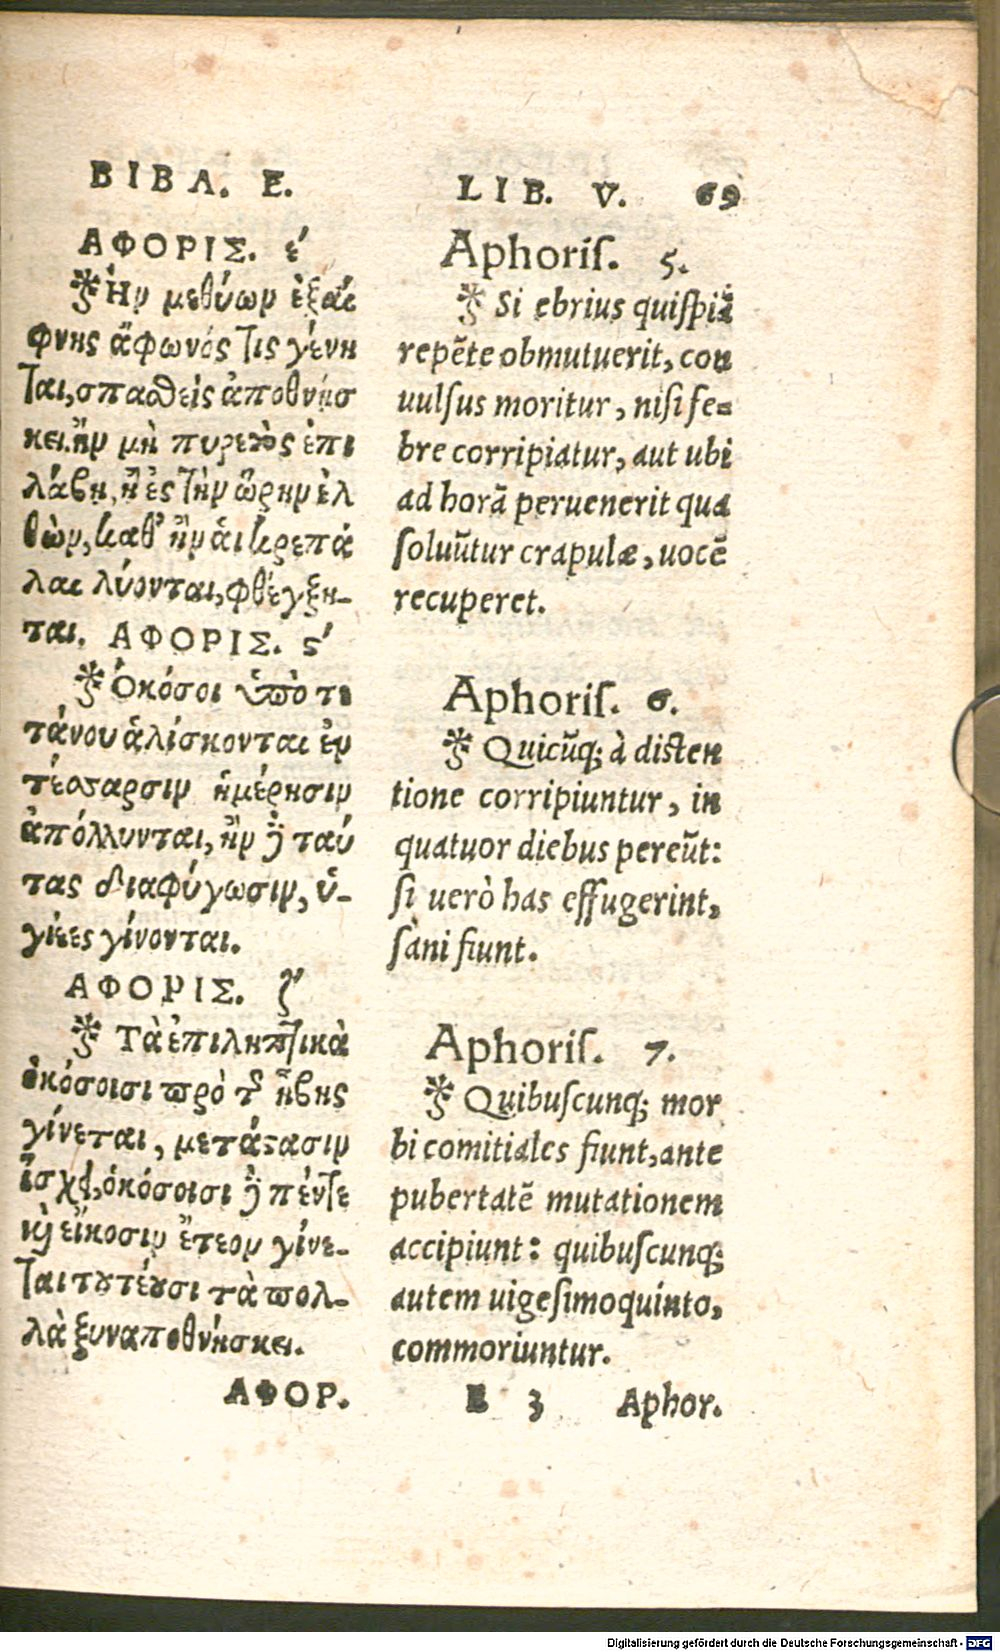 ΒΙΒΛ. Ε.
ΑΦΟΡΙΣ. ε´
Ἢν μεθύων ἐξαί
φνης ἄφωνός τις γένη
ται, σπασθεὶς ἀποθνήσ
κει. ἢν μὴ πυρετὸς ἐπι
λάβῃ, ἢ ἐς τὴν ὥρην ἐλ
θὼν, καθ᾽ ἢν ἁι κρεπά
λαι λύονται, φθέγξη-
ται. ΑΦΟΡΙΣ. ϛ´
Ὁκόσοι ὑπὸ τε
τάνου ἁλίσκονται ἐν
τέσσαρσιν ἡμέρησιν
ἀπόλλυνται, ἢν δὲ ταύ
τας διαφύγωσιν, ὑ-
γιέες γίνονται.
ΑΦΟΡΙΣ. ζ´
Τὰ ἐπιληπτικὰ
ὁκόσοισι πρὸ τῆς ἥβης
γίνεται, μετάστασιν
ἴσχει, ὁκόσοισι δὲ πέντε
καὶ εἴκοσιν ἔτεον γίνε-
ται τουτέουσι τὰ πολ-
λὰ ξυναποθνήσκει.
ΑΦΟΡ.
LIB. V. 69
Aphoris. 5.
Si ebrius quispiã
repẽte obmutuerit, con
uulsus moritur, nisi fe=
bre corripiatur, aut ubi
ad horã peruenerit qua
soluũtur crapulæ, uocẽ
recuperet.
Aphoris. 6.
Quicũq; à disten
tione corripiuntur, in
quatuor diebus pereũt:
si uerò has effugerint,
sani fiunt.
Aphoris. 7.
Quibuscunq; mor
bi comitiales fiunt, ante
pubertatẽ mutationem
accipiunt: quibuscunq;
autem uigesimoquinto,
commoriuntur.
E 3 Aphor.
Digitalisierung gefördert durch die Deutsche Forschungsgemeinschaft - DFG